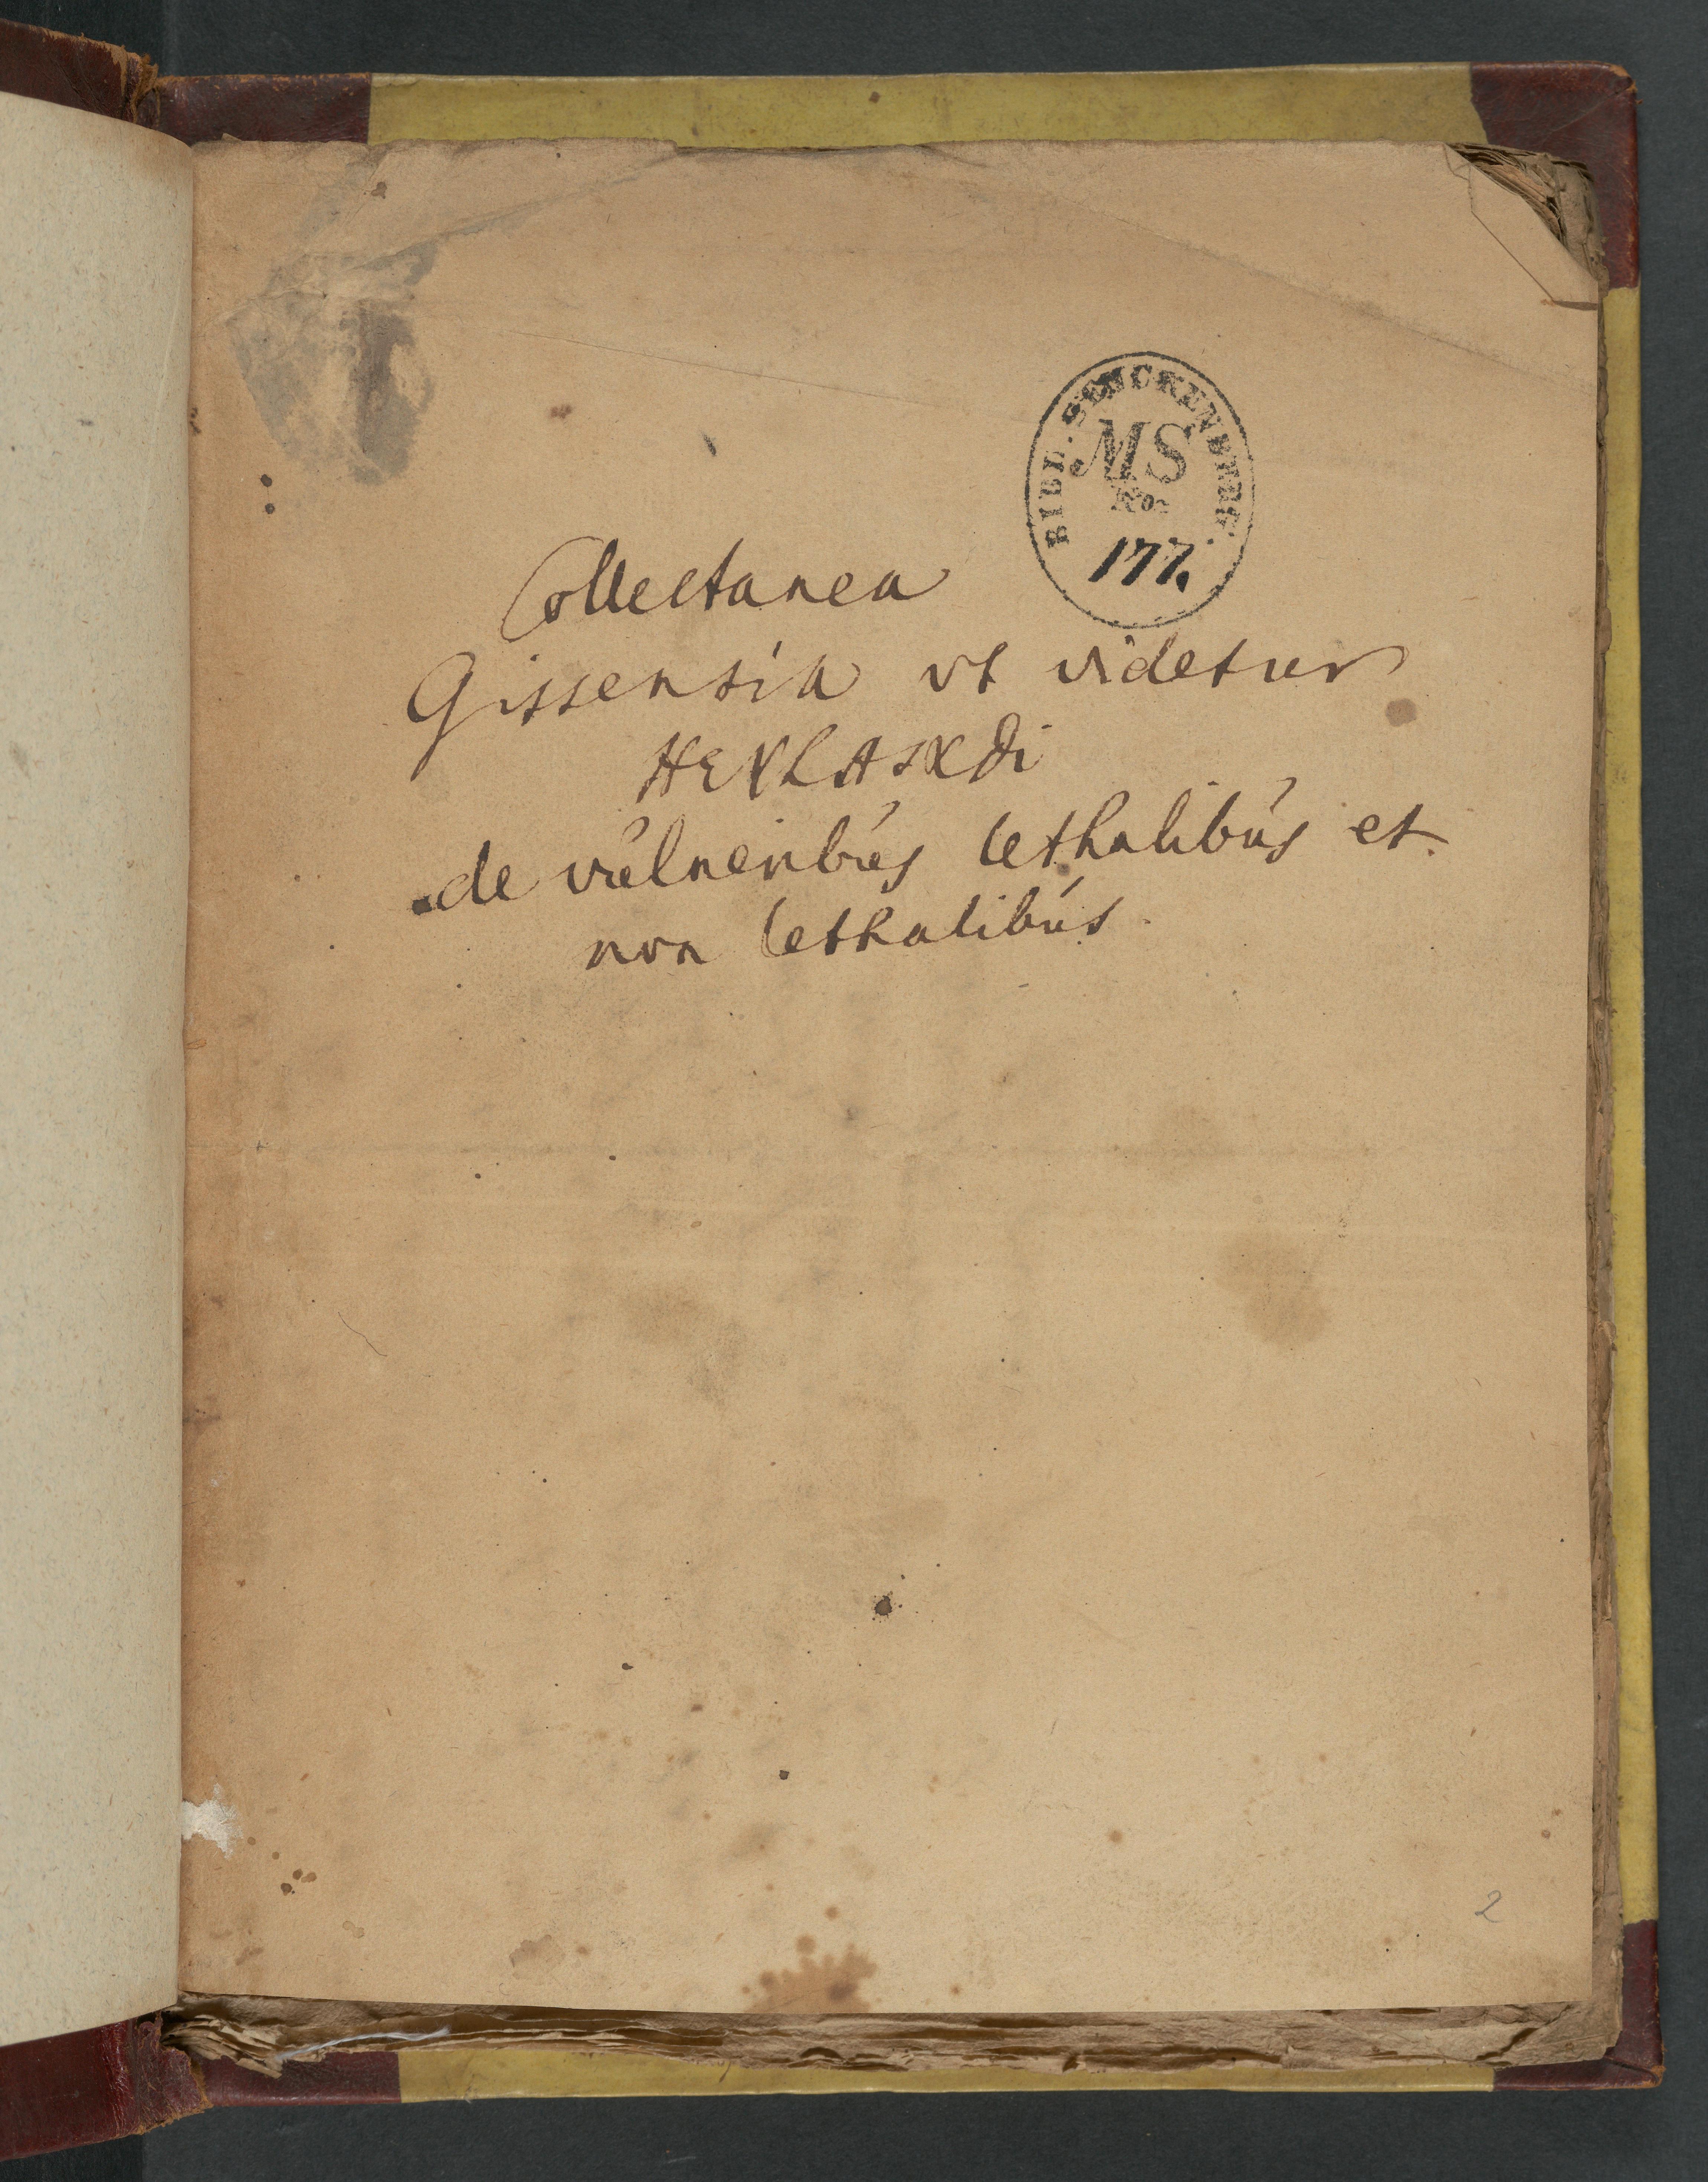 BIBL. SENCKENBERG.
MS
No.
177.
Collectanea
Gissensia vt videtur
de vúlneribús lethalibús et
non lethalibús.
2